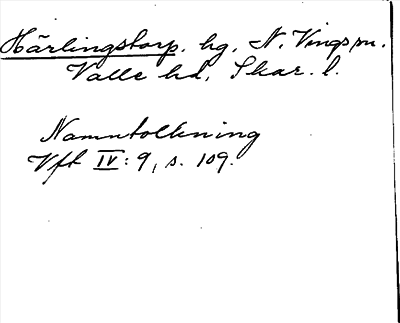 Härlingstorp. hg. N. Vings sn.
Valle hd, Skar. l.
Namntolkning
Vft IV: 9, s. 109.